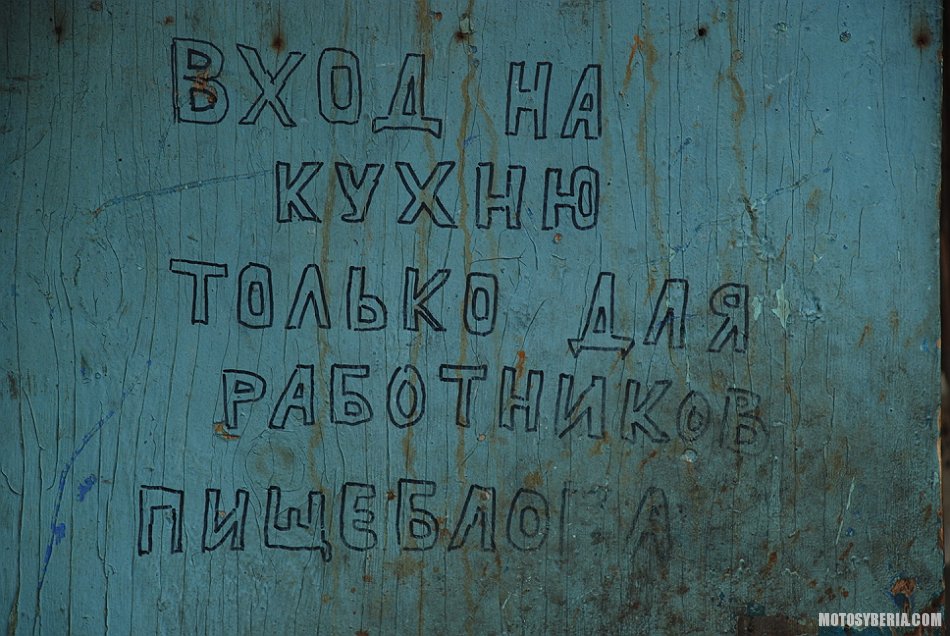 ВХОД НА
КУХНЮ
ТОЛЬКО ДЛЯ
РАБОТНИКОВ
ПИЩЕБЛОКА
MOTOSYBERIA.COM